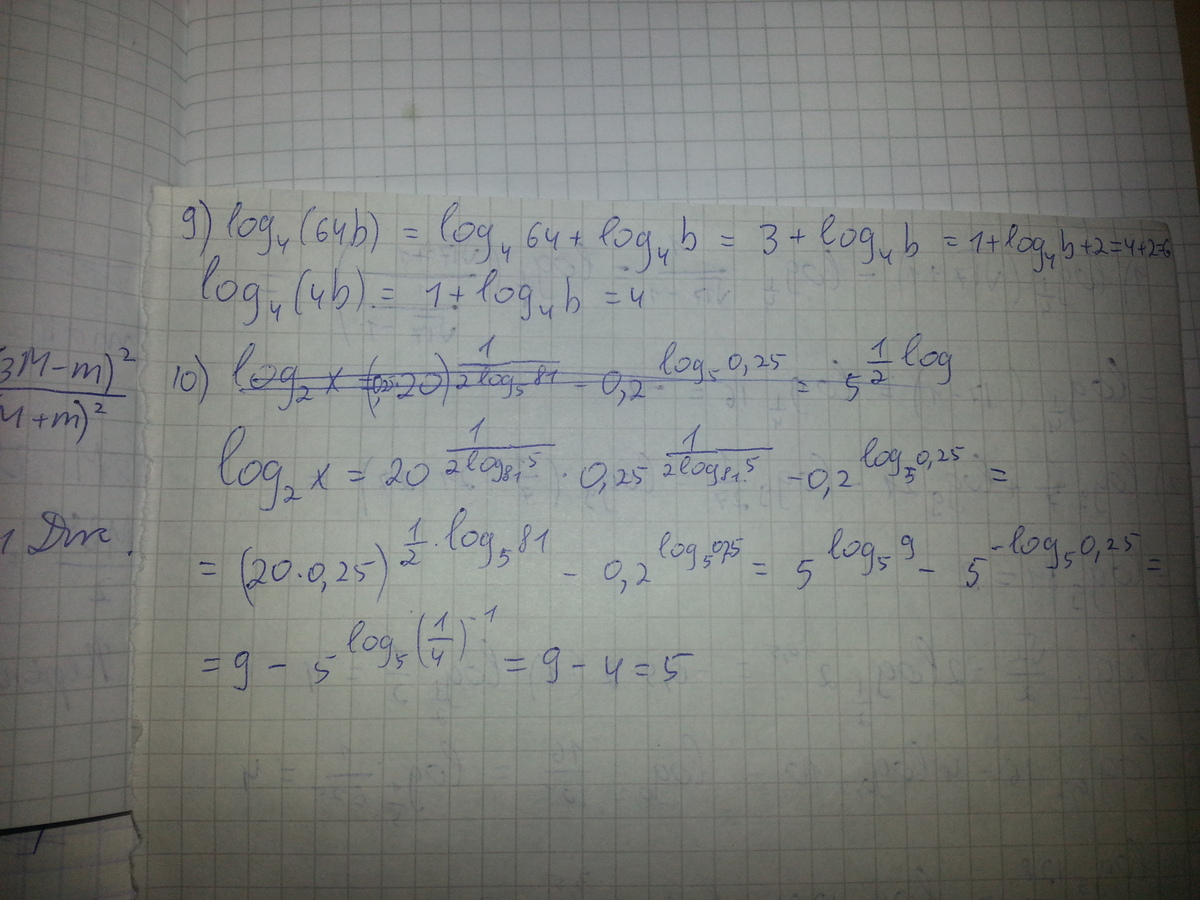 9) log₄(64b) = log₄ 64 + log₄ b = 3 + log₄ b = 1 + log₄ b + 2 = 4 + 2 = 6
log₄(4b) = 1 + log₄ b = 4
10) log₂ x = (0,25·20)^(1/(2log₅81)) - 0,2^(log₅ 0,25) = 5^(1/2 log
log₂ x = 20^(1/(2log₈₁5)) · 0,25^(1/(2log₈₁5)) - 0,2^(log₅ 0,25) =
= (20·0,25)^(1/2 · log₅ 81) - 0,2^(log₅ 0,25) = 5^(log₅ 9) - 5^(-log₅ 0,25) =
= 9 - 5^(log₅ (1/4)⁻¹) = 9 - 4 = 5
(3M-m)²
M+m)²